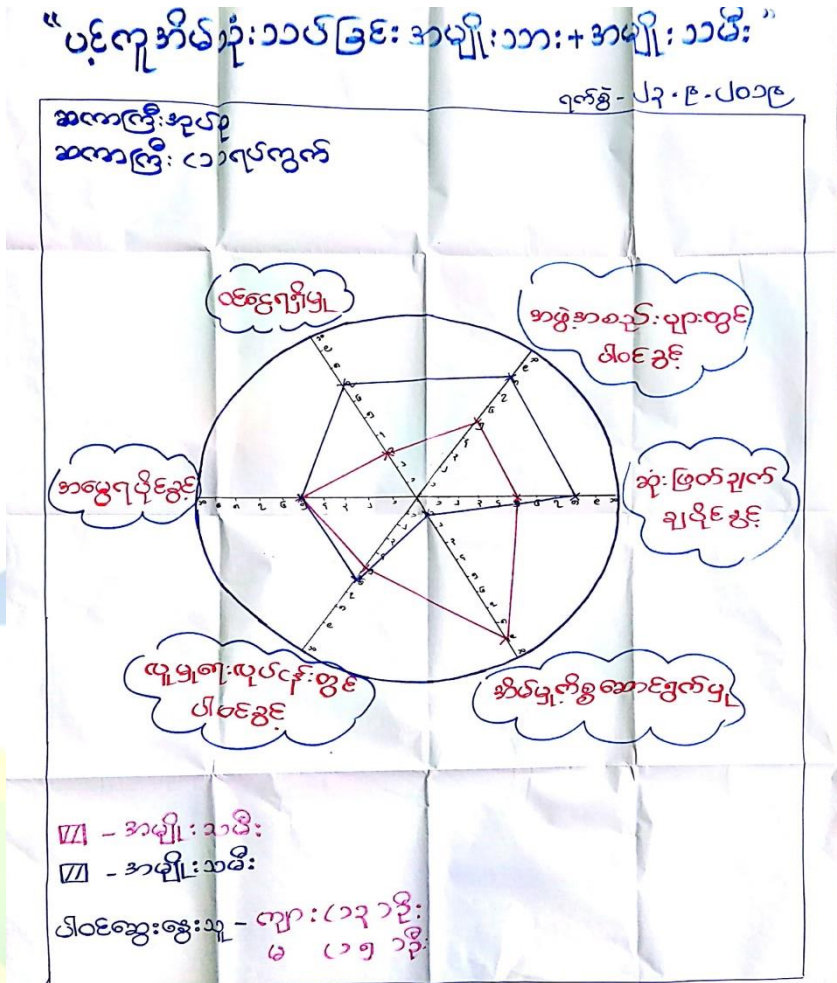 "ပင့်ကူအိမ်သုံးသပ်ခြင်း အမျိုးသား+အမျိုးသမီး"
ရက်စွဲ - ၂၃.၉.၂၀၁၉
ဆကာကြီးအုပ်စု
ဆကာကြီး (၁)ရပ်ကွက်
ဝင်ငွေရရှိမှု
အဖွဲ့အစည်းများတွင်
ပါဝင်ခွင့်
အမွေရပိုင်ခွင့်
ဆုံးဖြတ်ချက်
ချပိုင်ခွင့်
လူမှုရေးလုပ်ငန်းတွင်
ပါဝင်ခွင့်
အိမ်မှုကိစ္စဆောင်ရွက်မှု
- အမျိုးသမီး
- အမျိုးသမီး
ပါဝင်ဆွေးနွေးသူ - ကျား (၁၃)ဦး
မ (၁၅)ဦး